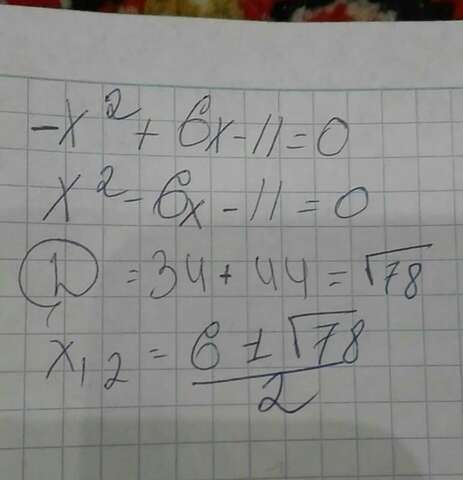 -x² + 6x - 11 = 0
x² - 6x - 11 = 0
D = 34 + 44 = √78
x₁,₂ = (6 ± √78)/2